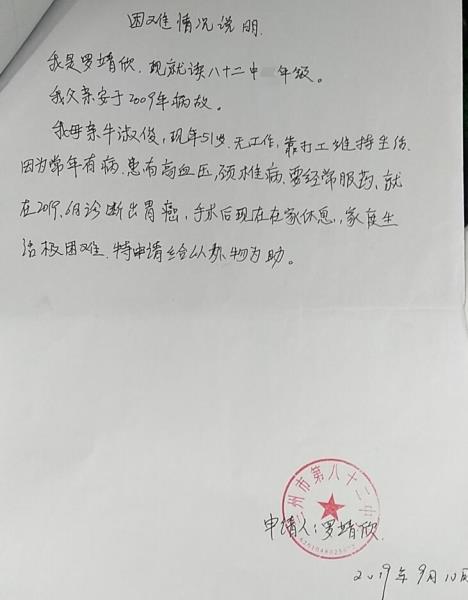 困难情况说明
我是罗靖欣，现就读八十二中 年级。
我父亲安于2009年病故。
我母亲牛淑俊，现年51岁，无工作，靠打工维持生活，
因为常年有病，患有高血压，颈椎病，要经常服药，就
在2019.6月诊断出胃癌，手术后现在在家休息，家庭生
活极困难，特申请给以协助为助。
州市第八十二中
申请人：罗靖欣
2019年9月10日